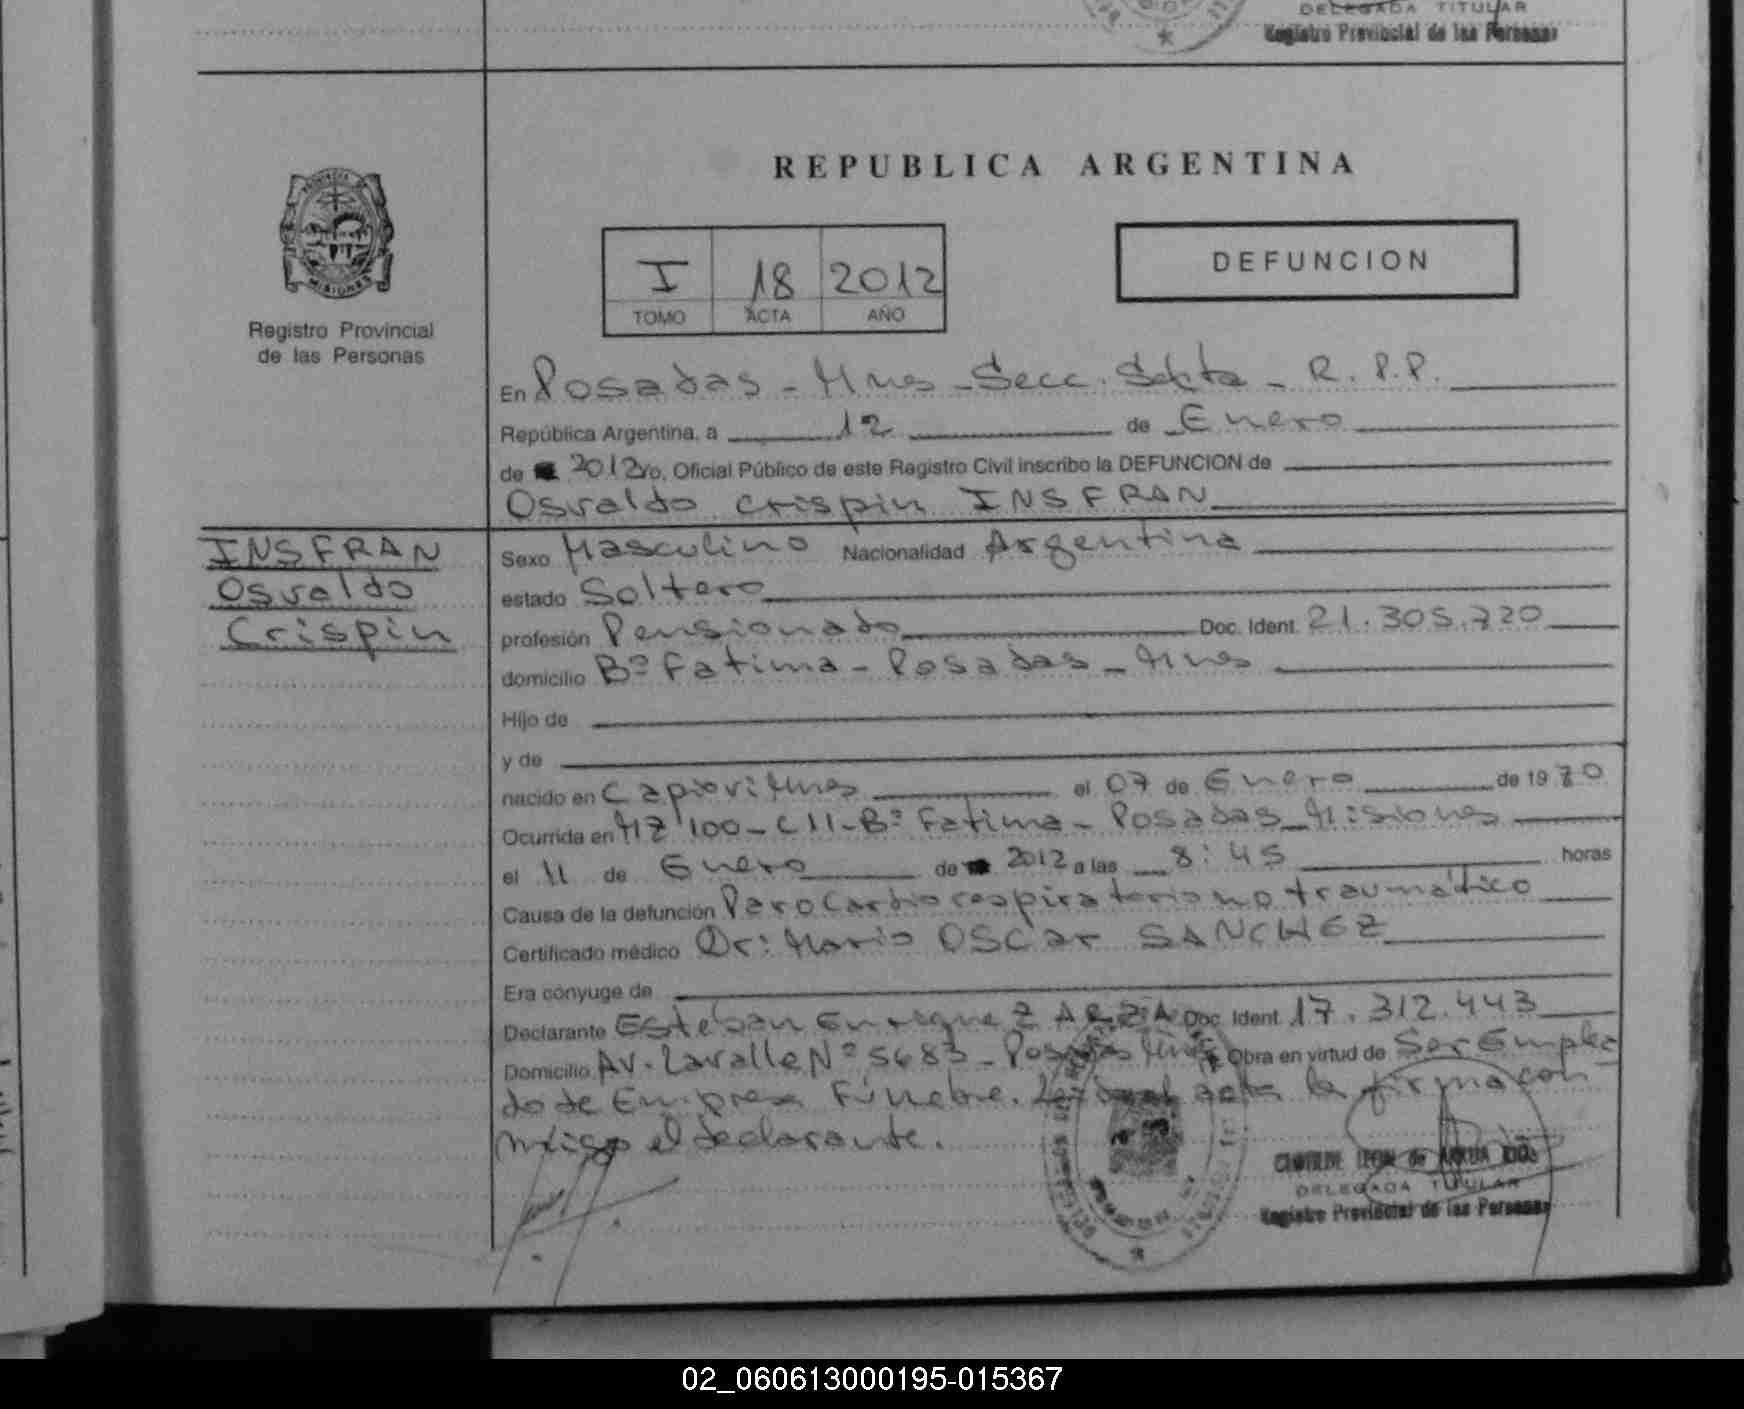 DELEGADA TITULAR
Registro Provincial de las Personas
REPUBLICA ARGENTINA
PROVINCIA DE
MISIONES
Registro Provincial
de las Personas
I 18 2012
TOMO ACTA AÑO
DEFUNCION
En Posadas - Mnes - Secc. Sexta - R.P.P.
República Argentina, a 12 de Enero
de 2012 Yo, Oficial Público de este Registro Civil inscribo la DEFUNCION de
Osvaldo Crispin INSFRAN
INSFRAN
Osvaldo
Crispin
Sexo Masculino Nacionalidad Argentina
estado Soltero
profesión Pensionado Doc. Ident. 21.305.720
domicilio Bº Fatima - Posadas - Mnes
Hijo de
y de
nacido en Capiovi Mnes el 07 de Enero de 1970
Ocurrida en MZ 100 - C 11 - Bº Fatima - Posadas - Misiones
el 11 de Enero de 2012 a las 8:45 horas
Causa de la defunción Paro Cardiorespiratorio no traumático
Certificado médico Dr: Mario OSCar SANCHEZ
Era cónyuge de
Declarante Esteban Enrique ZARZA Doc. Ident. 17.312.443
Domicilio Av. Lavalle Nº 5683 - Posadas Mnes Obra en virtud de Ser Emplea
do de Empresa Fúnebre. Leida el acta la firma con
migo el declarante.
DELEGADA TITULAR
Registro Provincial de las Personas
02_060613000195-015367